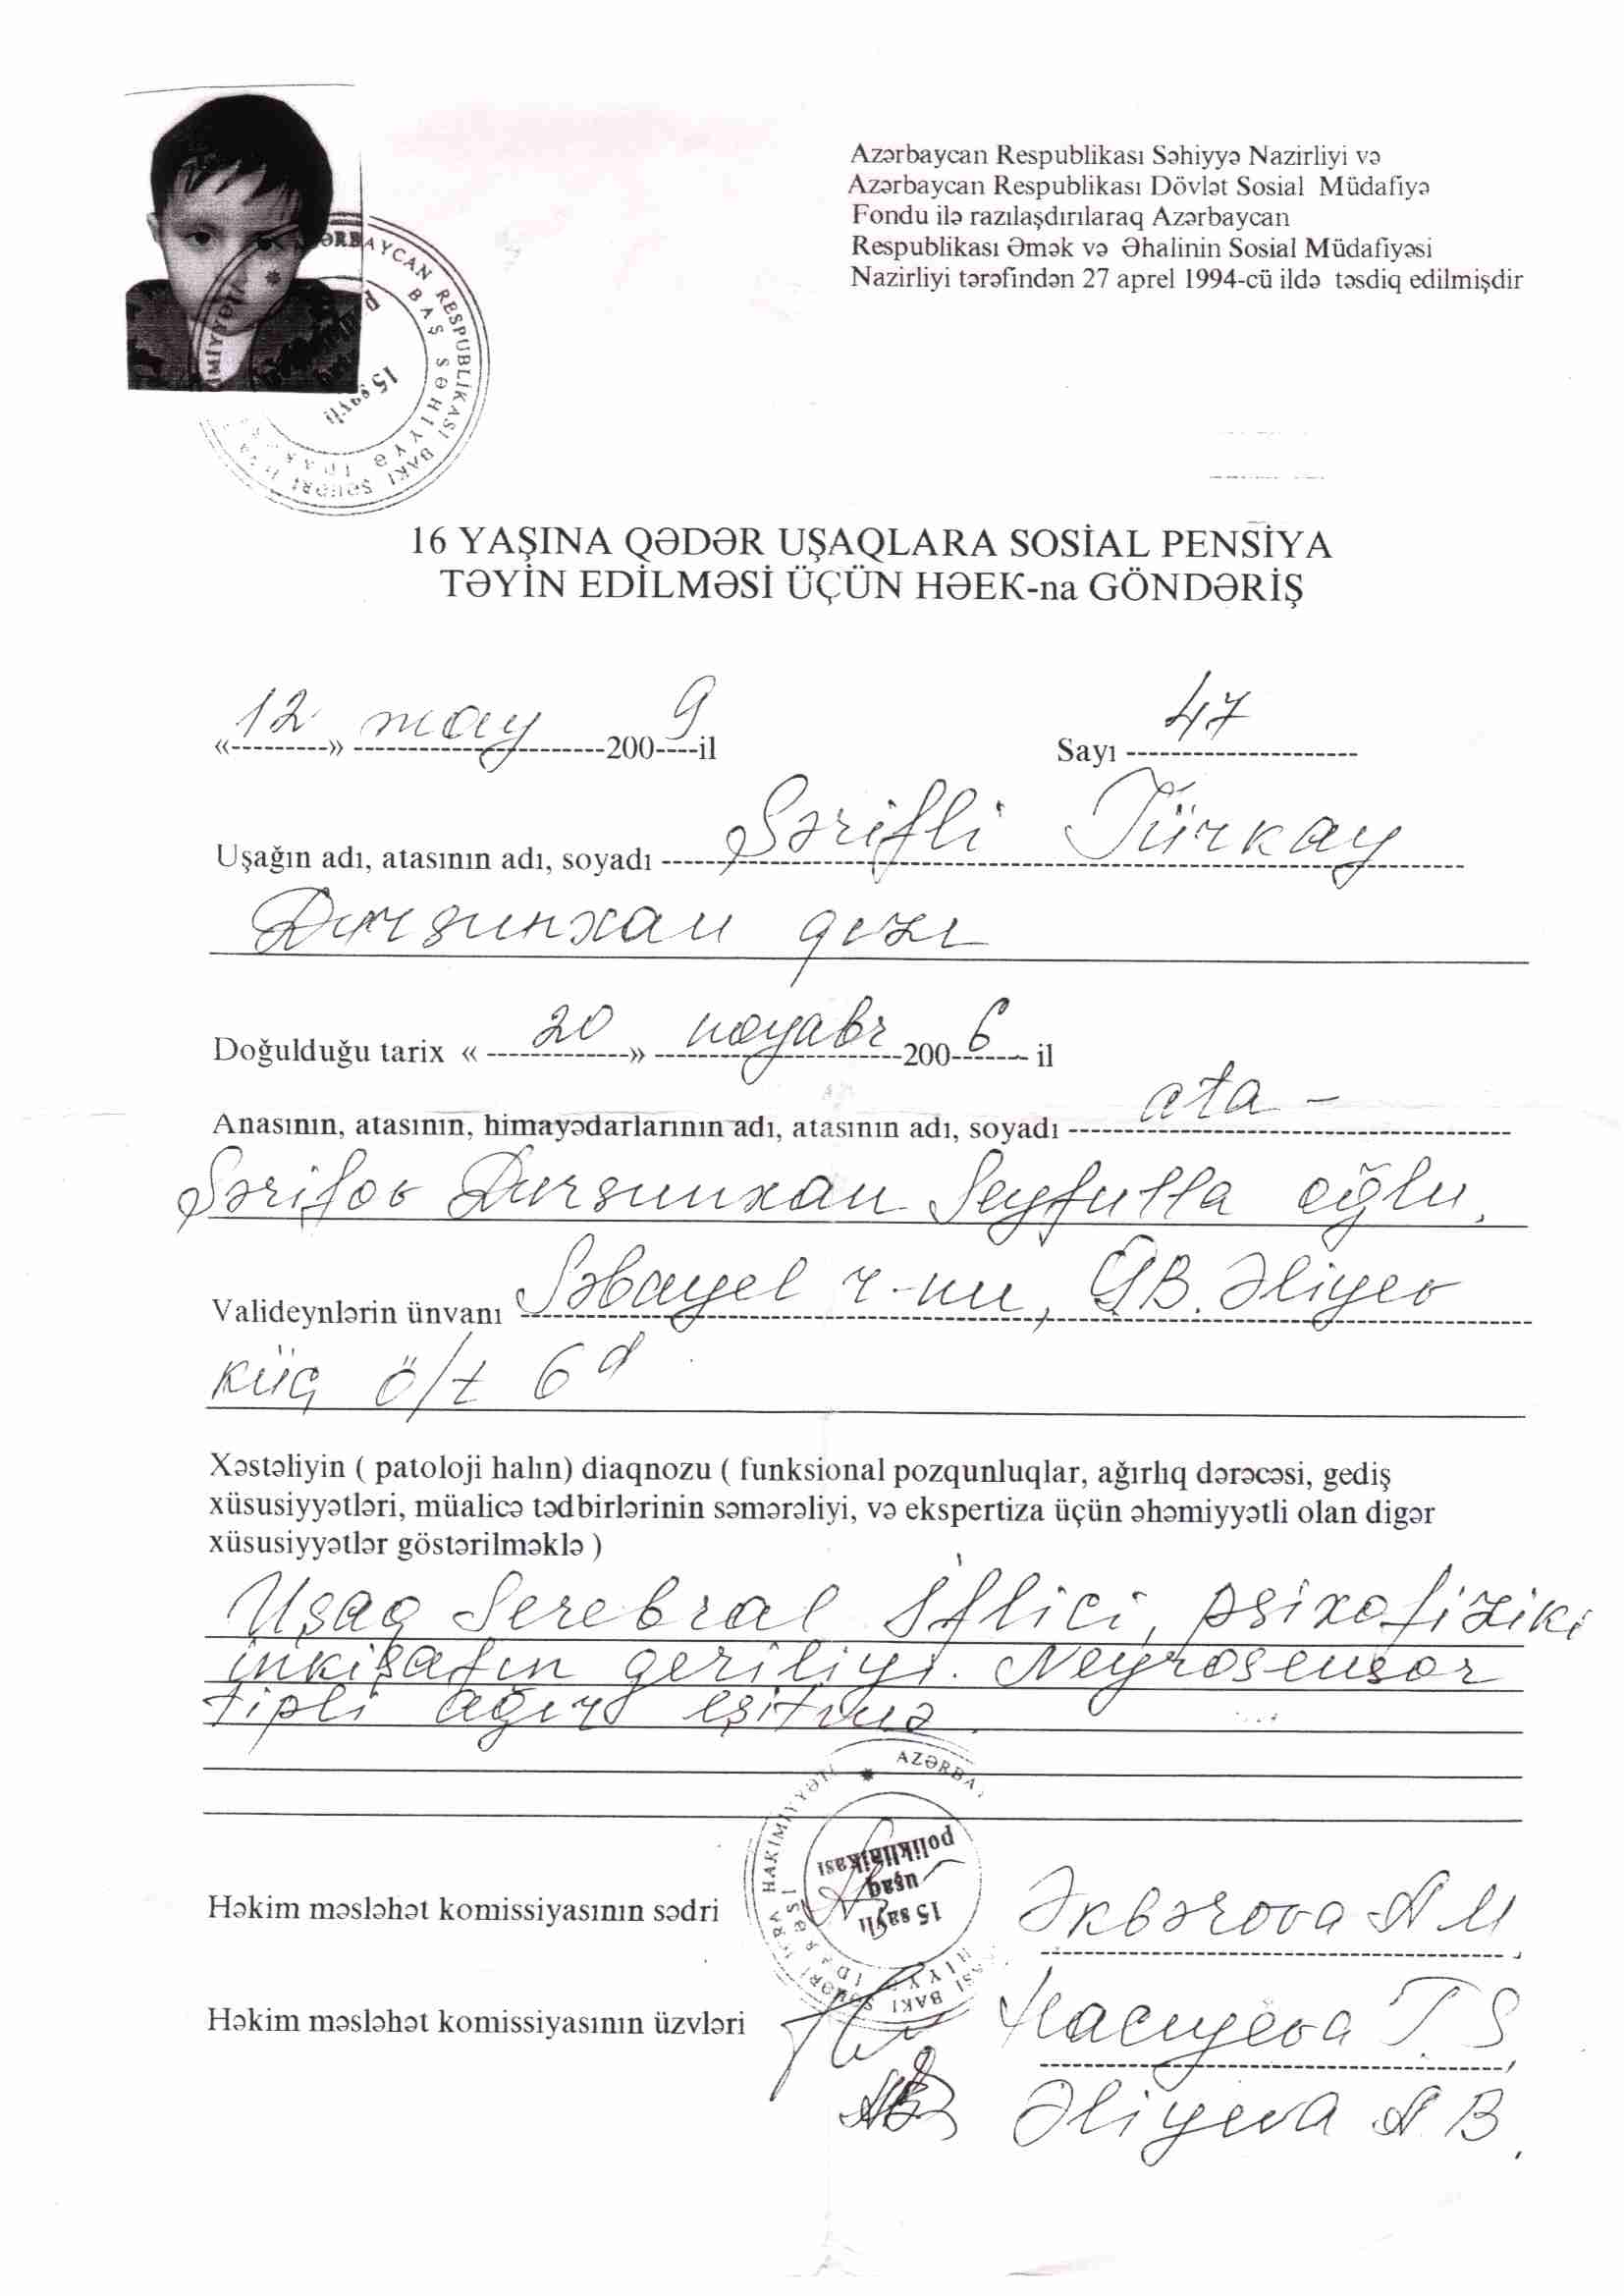 Azərbaycan Respublikası Səhiyyə Nazirliyi və
Azərbaycan Respublikası Dövlət Sosial Müdafiyə
Fondu ilə razılaşdırılaraq Azərbaycan
Respublikası Əmək və Əhalinin Sosial Müdafiyəsi
Nazirliyi tərəfindən 27 aprel 1994-cü ildə təsdiq edilmişdir
AZƏRBAYCAN RESPUBLİKASI BAKI ŞƏHƏRİ
BAŞ SƏHİYYƏ İDARƏSİ
15 saylı
16 YAŞINA QƏDƏR UŞAQLARA SOSİAL PENSİYA
TƏYİN EDİLMƏSİ ÜÇÜN HƏEK-na GÖNDƏRİŞ
«12» may 2009 il Sayı 47
Uşağın adı, atasının adı, soyadı Şərifli Türkay
Dursunxan qızı
Doğulduğu tarix «20» noyabr 2006 il
Anasının, atasının, himayədarlarının adı, atasının adı, soyadı ata -
Şərifov Dursunxan Seyfulla oğlu,
Valideynlərin ünvanı Səbayel r-nu, B. Əliyev
küç ö/t 6 d
Xəstəliyin ( patoloji halın) diaqnozu ( funksional pozqunluqlar, ağırlıq dərəcəsi, gediş
xüsusiyyətləri, müalicə tədbirlərinin səmərəliyi, və ekspertiza üçün əhəmiyyətli olan digər
xüsusiyyətlər göstərilməklə )
Uşaq Serebral İflici, psixofiziki
inkişafın geriliyi. Neyrosensor
tipli ağır eşitmə.
15 saylı uşaq poliklinikası
Həkim məsləhət komissiyasının sədri Əkbərova A M
Həkim məsləhət komissiyasının üzvləri T. S,
Əliyeva A B.